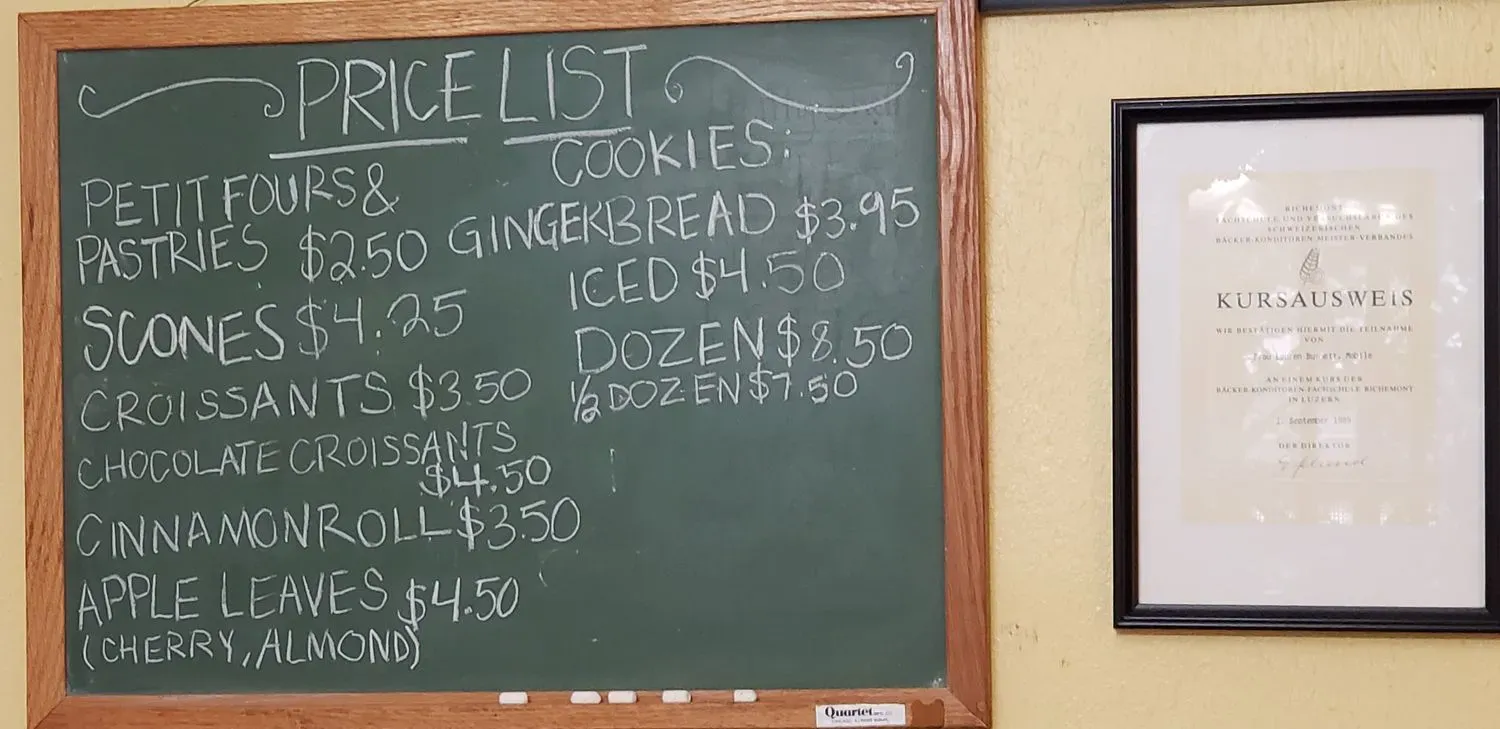 PRICE LIST
PETIT FOURS &
PASTRIES $2.50
SCONES $4.25
CROISSANTS $3.50
CHOCOLATE CROISSANTS
$4.50
CINNAMON ROLL $3.50
APPLE LEAVES $4.50
(CHERRY, ALMOND)
COOKIES:
GINGERBREAD $3.95
ICED $4.50
DOZEN $8.50
1/2 DOZEN $7.50
Quartet
RICHEMONT
FACHSCHULE UND VERSUCHSLABOR DES
SCHWEIZERISCHEN
BÄCKER-KONDITOREN-MEISTER-VERBANDES
KURSAUSWEIS
WIR BESTÄTIGEN HIERMIT DIE TEILNAHME
VON
Frau Lauren Mobile
AN EINEM KURS DER
BÄCKER-KONDITOREN-FACHSCHULE RICHEMONT
IN LUZERN
1. September
DER DIREKTOR